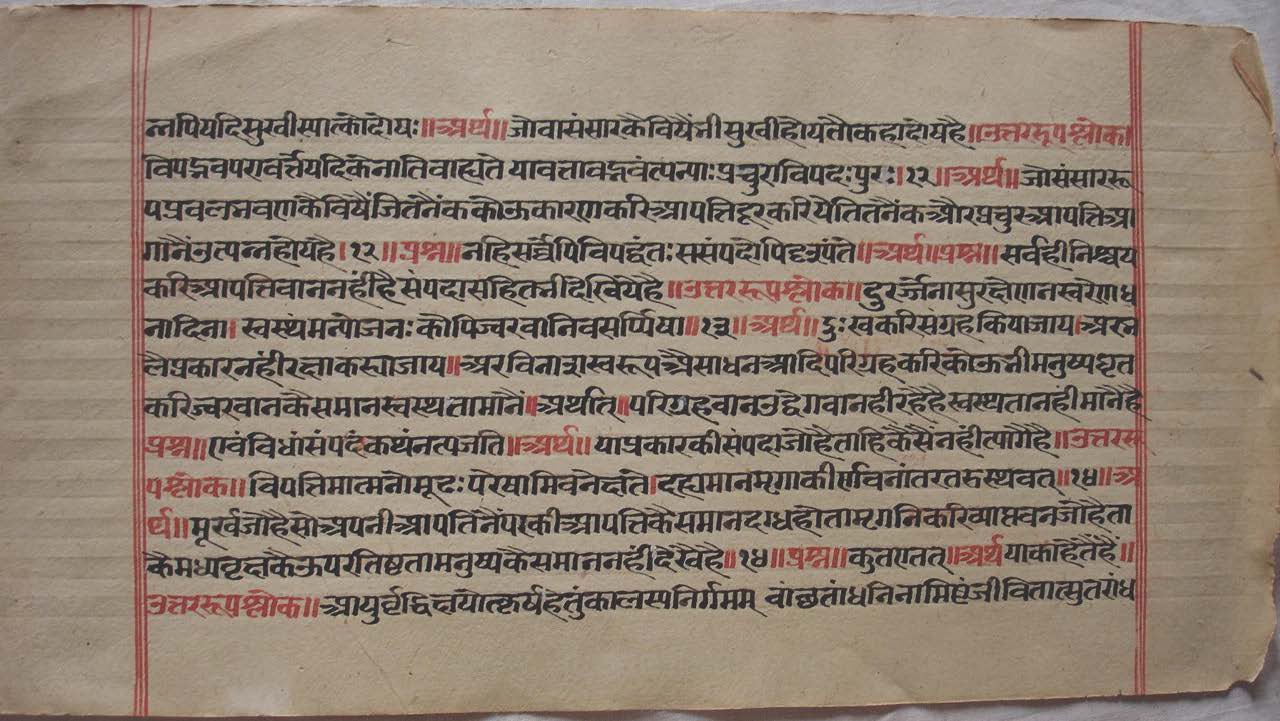 न्नपियदिसुखीस्यात्कोदोयः॥अर्थ॥जोवासंसारकैविषैंभीसुखीहोयतौकहादोयहै॥उत्तररूपश्लोक।
विपद्भवपदावर्त्तेयदिकेनातिवाह्यते यावत्तावद्भवंत्यन्याःप्रचुराविपदःपुरः।१२॥अर्थ॥जोसंसाररू
पप्रवलभवणकैविषैंजितनैंककोऊकारणकरिआपत्तिदूरकरियेतितनैंकऔरप्रचुरआपत्तिआ
गानैंउत्पन्नहोयहै।१२॥प्रश्न॥नहिसर्व्वेपिविपद्वंतःससंपदोपिदृश्यंते॥अर्थ॥प्रश्न॥सर्वहीनिश्चय
करिआपत्तिवाननहींहैसंपदासहितभीदेखियेहै॥उत्तररूपश्लोक॥दुरर्ज्जेनासुरक्षेणनस्वरेणध
नादिना।स्वस्थंमन्योजनःकोपिज्वरवानिवसर्प्पिषा॥१३॥अर्थ॥दुःखकरिसंग्रहकियाजाय।अरभ
लैप्रकारनहींरक्षाकस्याजाय॥अरविनाशस्वरूपअैसाधनआदिपरिग्रहकरिकोऊभीमनुष्यघृत
करिज्वरवानकैसमानस्वस्थतामानैं॥अर्थात्॥परिग्रहवानउद्वेगवानहीरहैहैस्वस्थतानहींमानैहै
प्रश्न॥एवंविधांसंपदंकथंनत्यजति॥अर्थ॥याप्रकारकीसंपदाजोहैताहिकैसैंनहींत्यागैहै॥उत्तररू
पश्लोक॥विपत्तिमात्मनोमूढःपरेषामिवनेक्षते।दह्यमानमृगाकीर्णवनांतरतरुस्थवत्॥१४॥अ
र्थ॥मूर्खजोहैसोअपनीआपतिनैंपरकीआपत्तिकैसमानदग्धहोतामृगनिकरिव्याप्तवनजोहैता
कैमध्यवृक्षकैऊपरतिष्ठतामनुष्यकैसमाननहींदेखैहै॥१४॥प्रश्न॥कुतएतत्॥अर्थयाकाहेतैंहैं॥
उत्तररूपश्लोक॥आयुर्वृद्धिक्षयोत्कर्षहेतुंकालस्यनिर्गमम् वांछतांधनिनामिष्टंजीवितात्सुतरांध